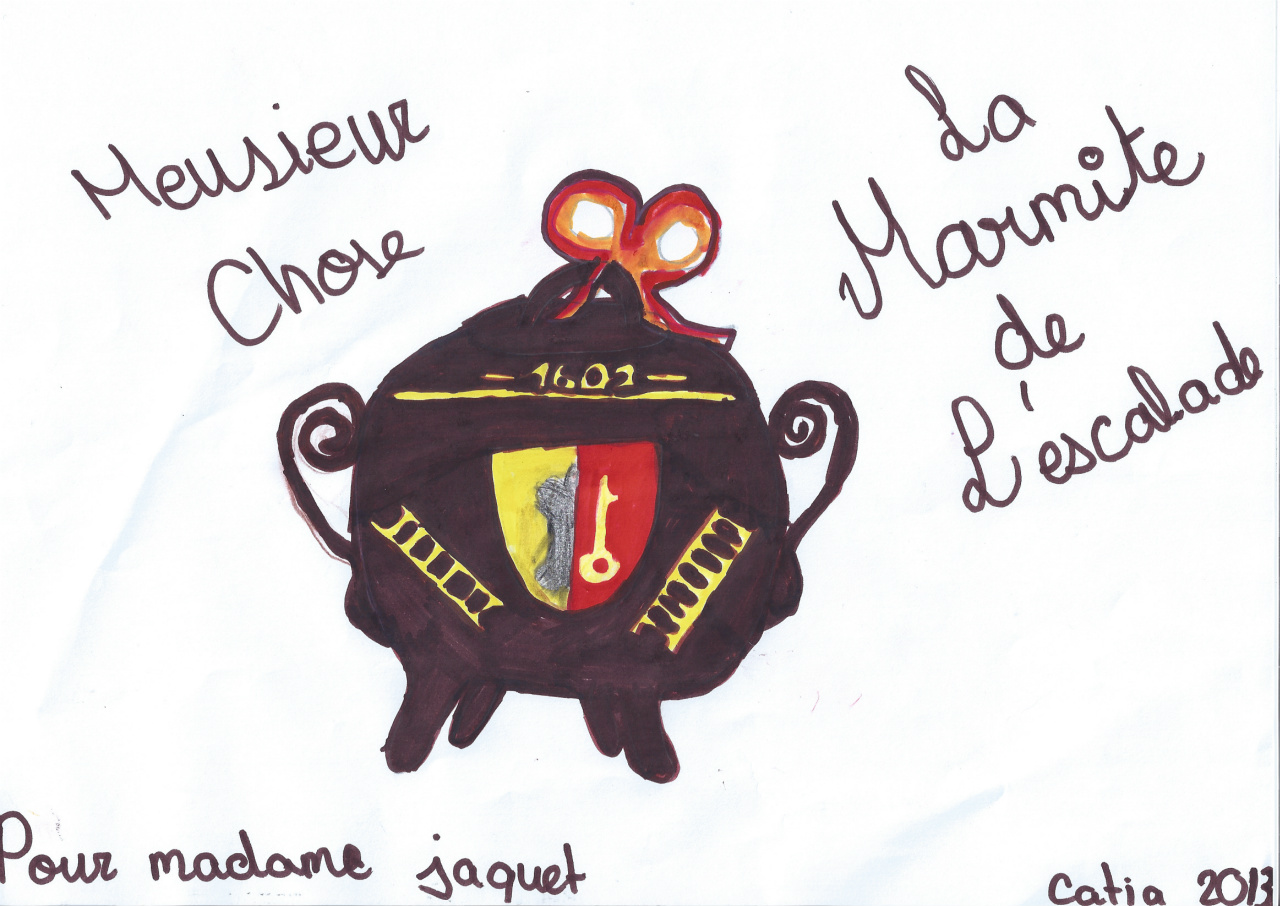 Meusieur
Chose
La
Marmite
de
L'escalade
- 1602 -
Pour madame jaquet
Catia 2013